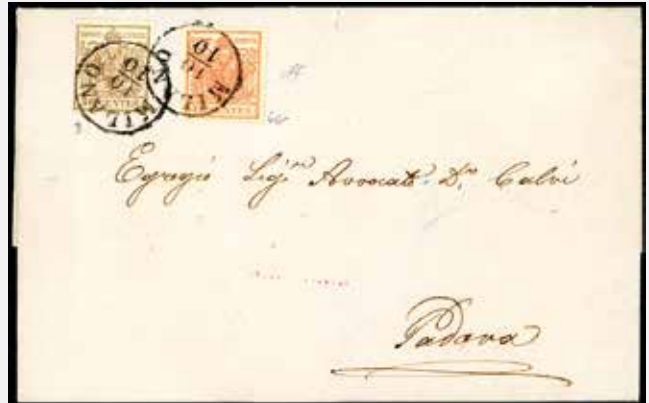 MILANO
10
10
MILANO
10
10
Egregio Sigr. Avvocato Dr. Calvi
Padova